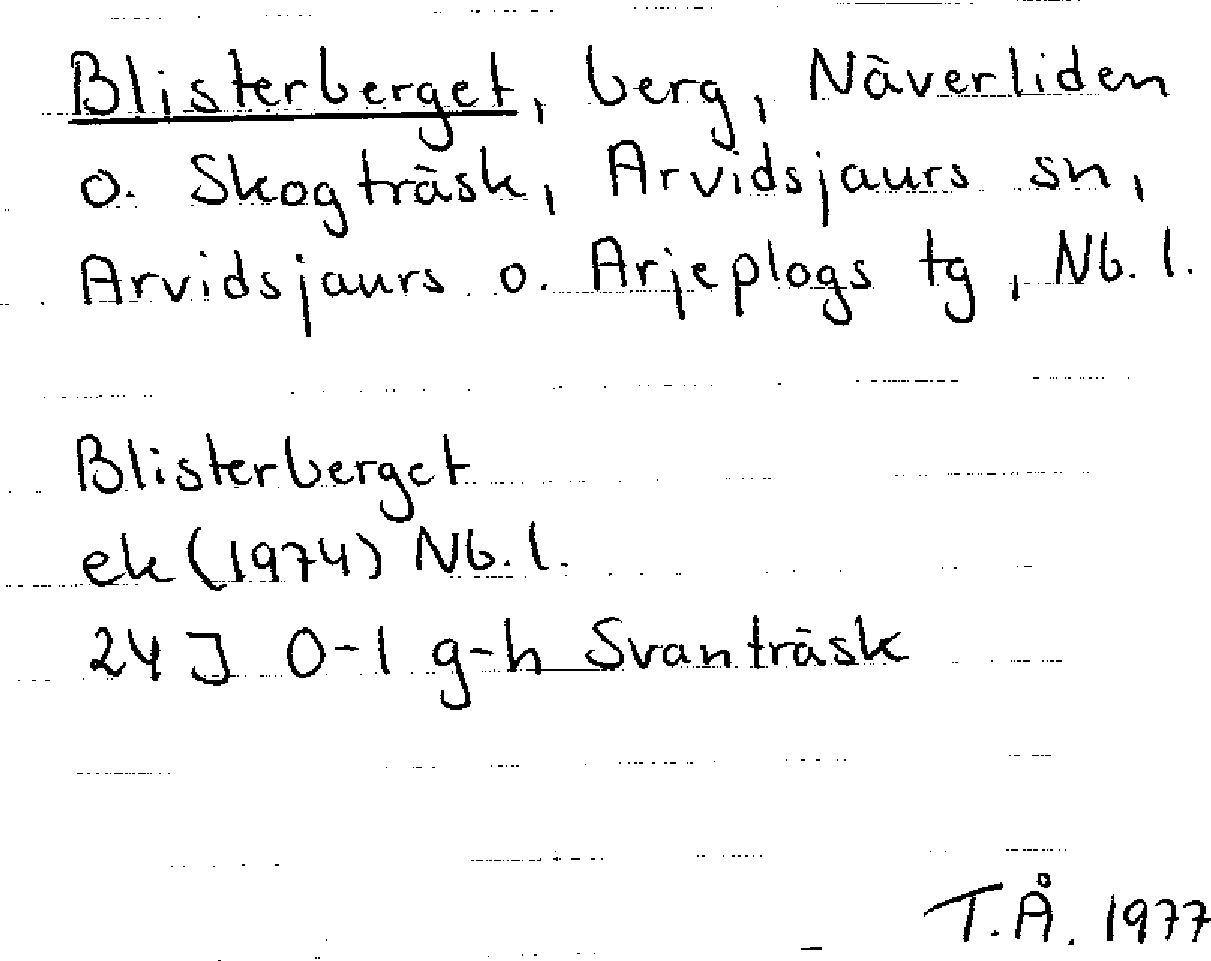 Blisterberget, berg, Näverliden
o. Skogträsk, Arvidsjaurs sn,
Arvidsjaurs o. Arjeplogs tg, Nb. l.
Blisterberget
ek (1974) Nb. l.
24 J 0-1 g-h Svanträsk
T.Å. 1977